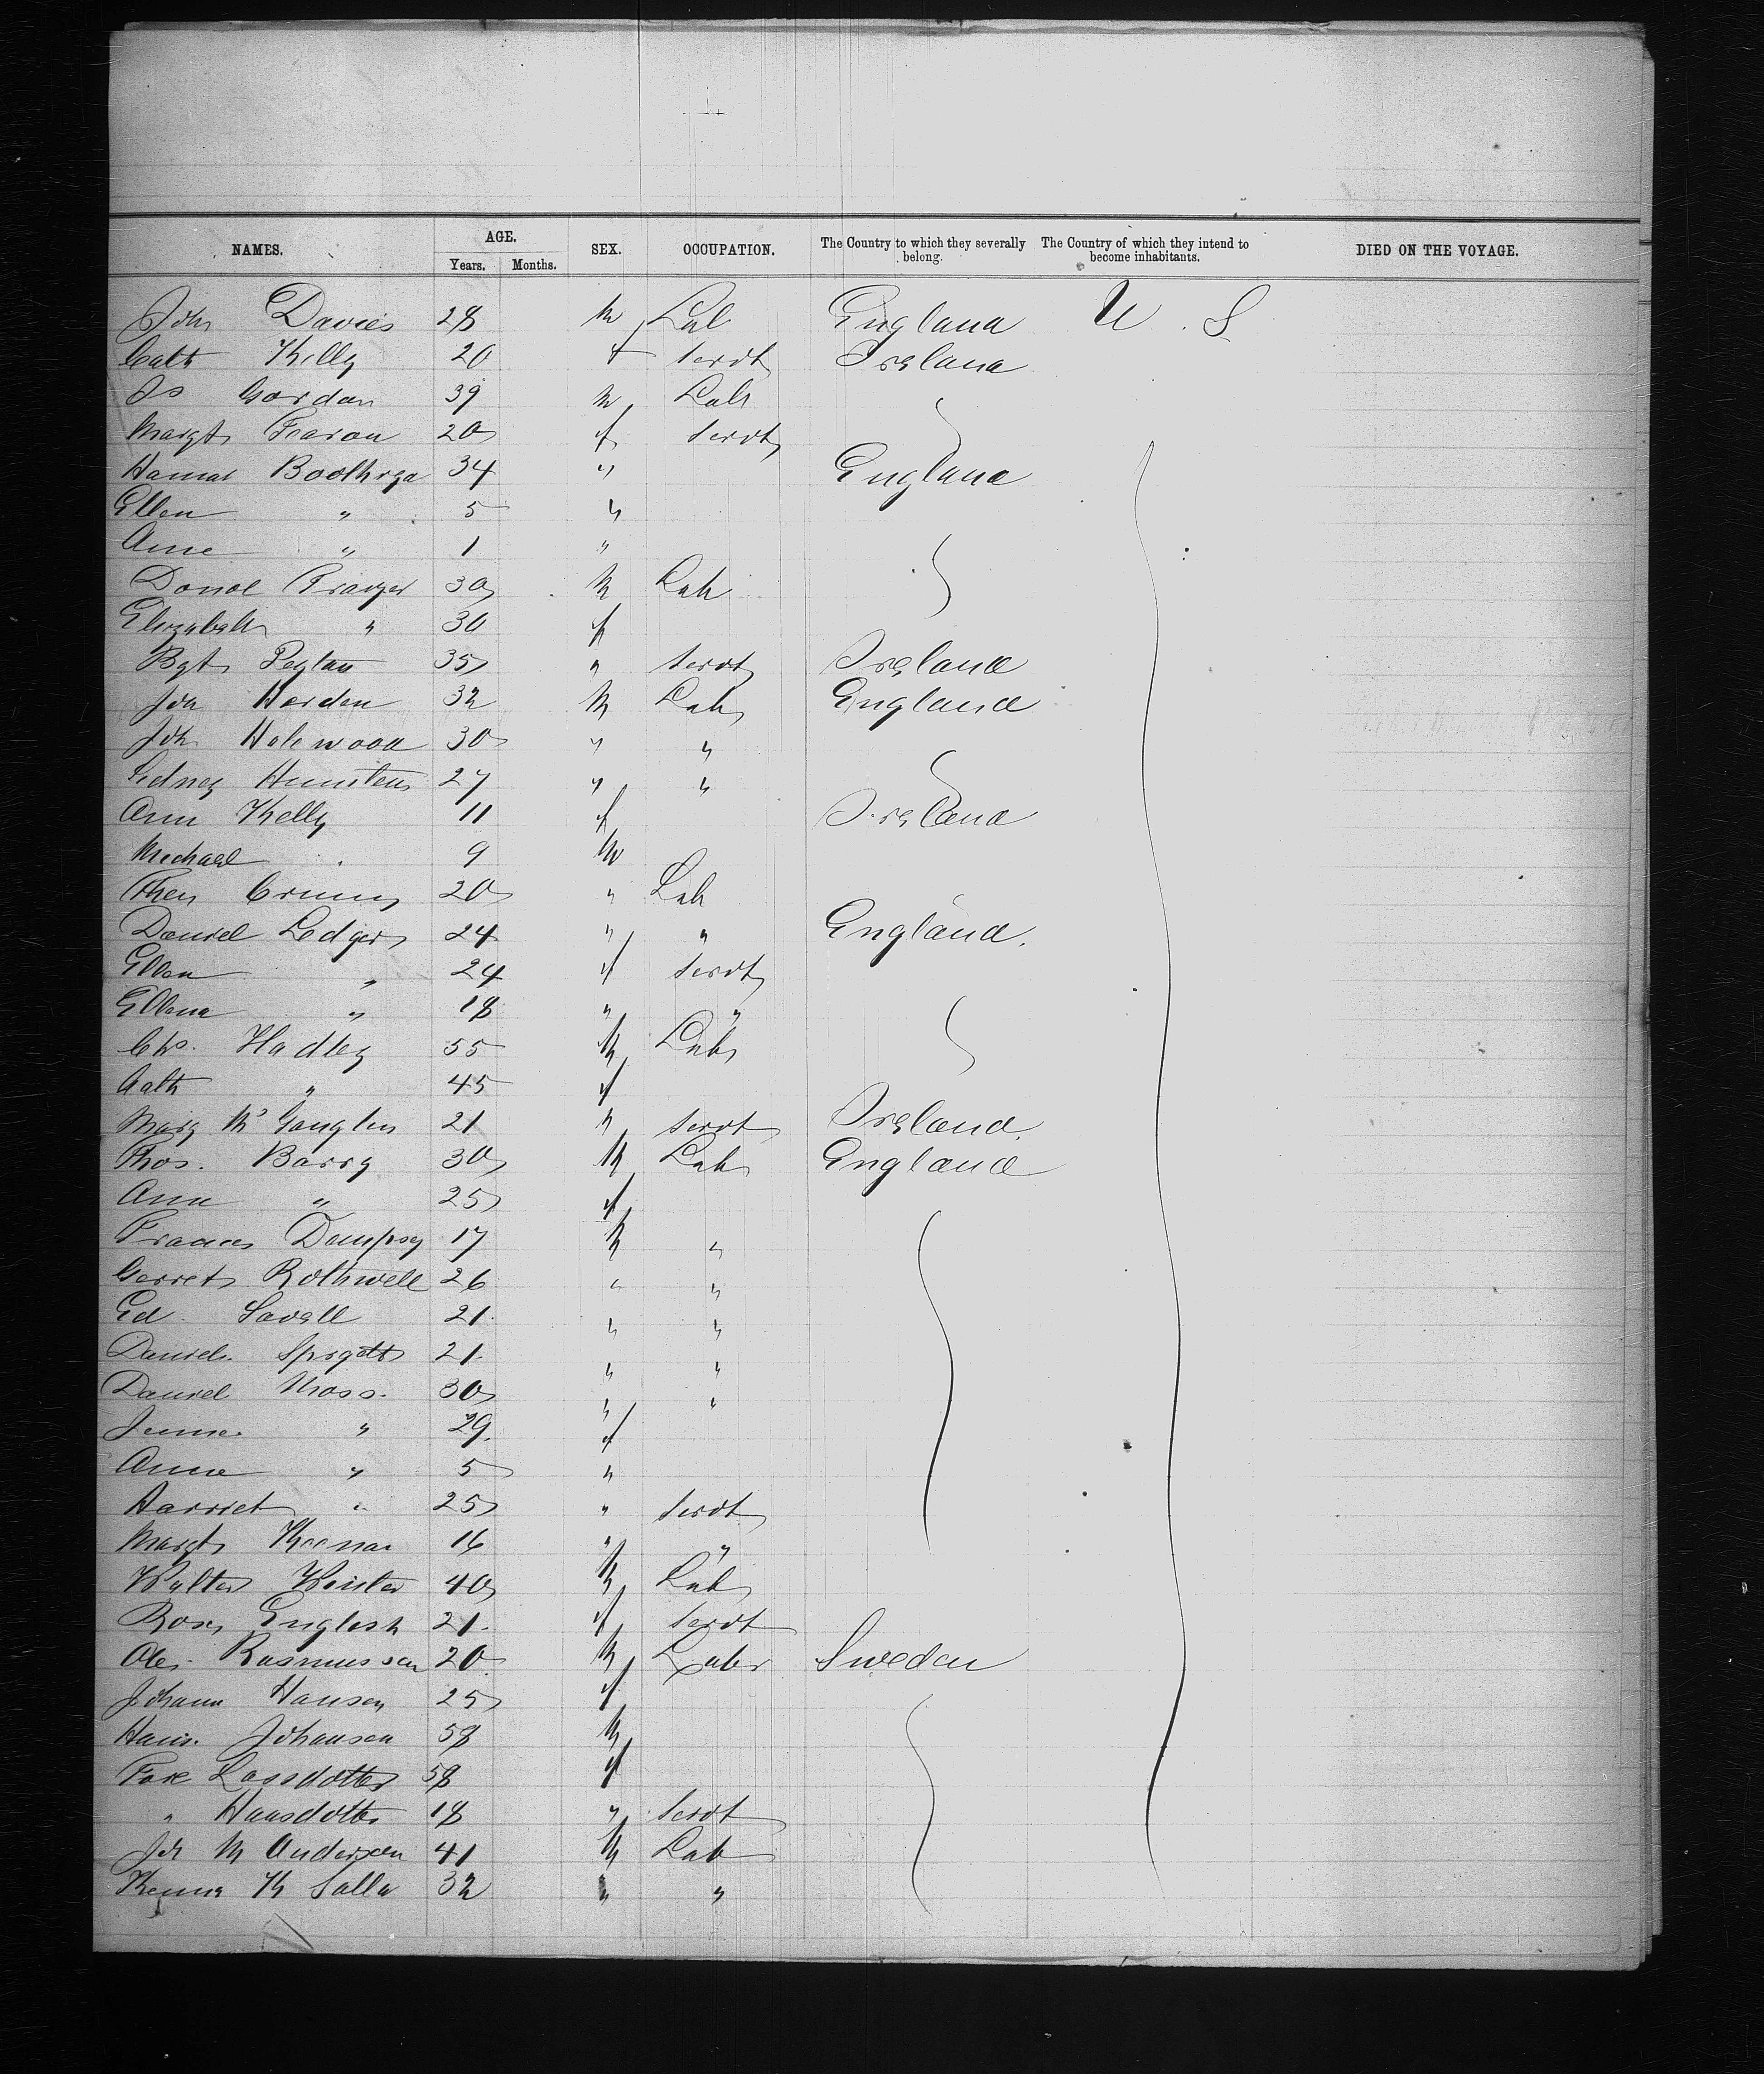 NAMES. AGE. SEX. OCCUPATION. The Country to which they severally belong. The Country of which they intend to become inhabitants. DIED ON THE VOYAGE.
Years. Months.
Joh Davies 28 m Lab England U. S
Cath Kelly 20 f Servt Ireland
Js Gordon 39 m Lab
Margt Fearon 20 f Servt
Hannah 34 " England
Ellen " 5 "
Anne " 1 "
Donal 30 M Lab
Elizabeth " 30 f
Bgt 35 " Servt Ireland
Joh Harden 32 M Lab England
Joh Holewood 30 " "
Sidney 27 " "
Ann Kelly 11 f Ireland
Michael " 9 M
20 " Lab
Daniel Ledger 24 " " England.
Ellen " 24 f Servt
Ellena " 18 " "
Chs. Hadley 55 M Lab
Cath " 45 f
Marg 21 " Servt Ireland
Thos. Barry 30 M Lab England
Ann " 25 f
Frances Dempsy 17 M "
Gerret Rothwell 26 " "
Ed. Savell 21 " "
Daniel 21 " "
Daniel Moss 30 " "
" 29 f
Anne " 5 "
Harriet " 25 " Servt
Margt Keenan 16 " "
Walter 40 M Lab
Rose English 21 f Servt
Ole Rasmussen 20 M Labr Sweden
Johann Hansen 25 f
Hans Johansen 58 M
Lassdotter 58 f
" Hansdotter 18 " Servt
Joh M Andersen 41 M Lab
K Salla 32 " "